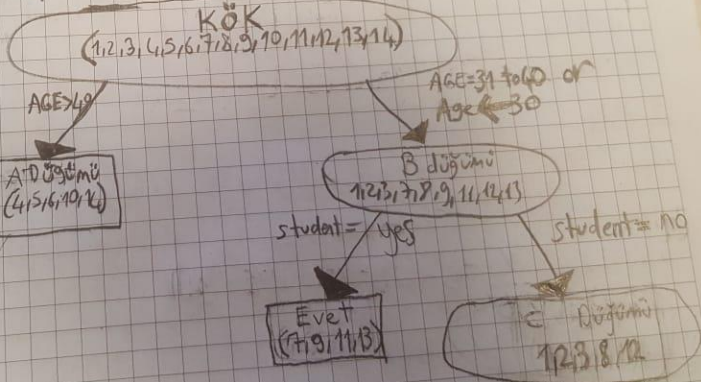 KÖK
(1,2,3,4,5,6,7,8,9,10,11,12,13,14)
AGE>49
AGE=31 to 40 or
Age<=30
A Düğümü
(4,5,6,10,14)
B düğümü
1,2,3,7,8,9,11,12,13
student= yes
student= no
Evet
(7,9,11,13)
C Düğümü
1,2,3,8,12